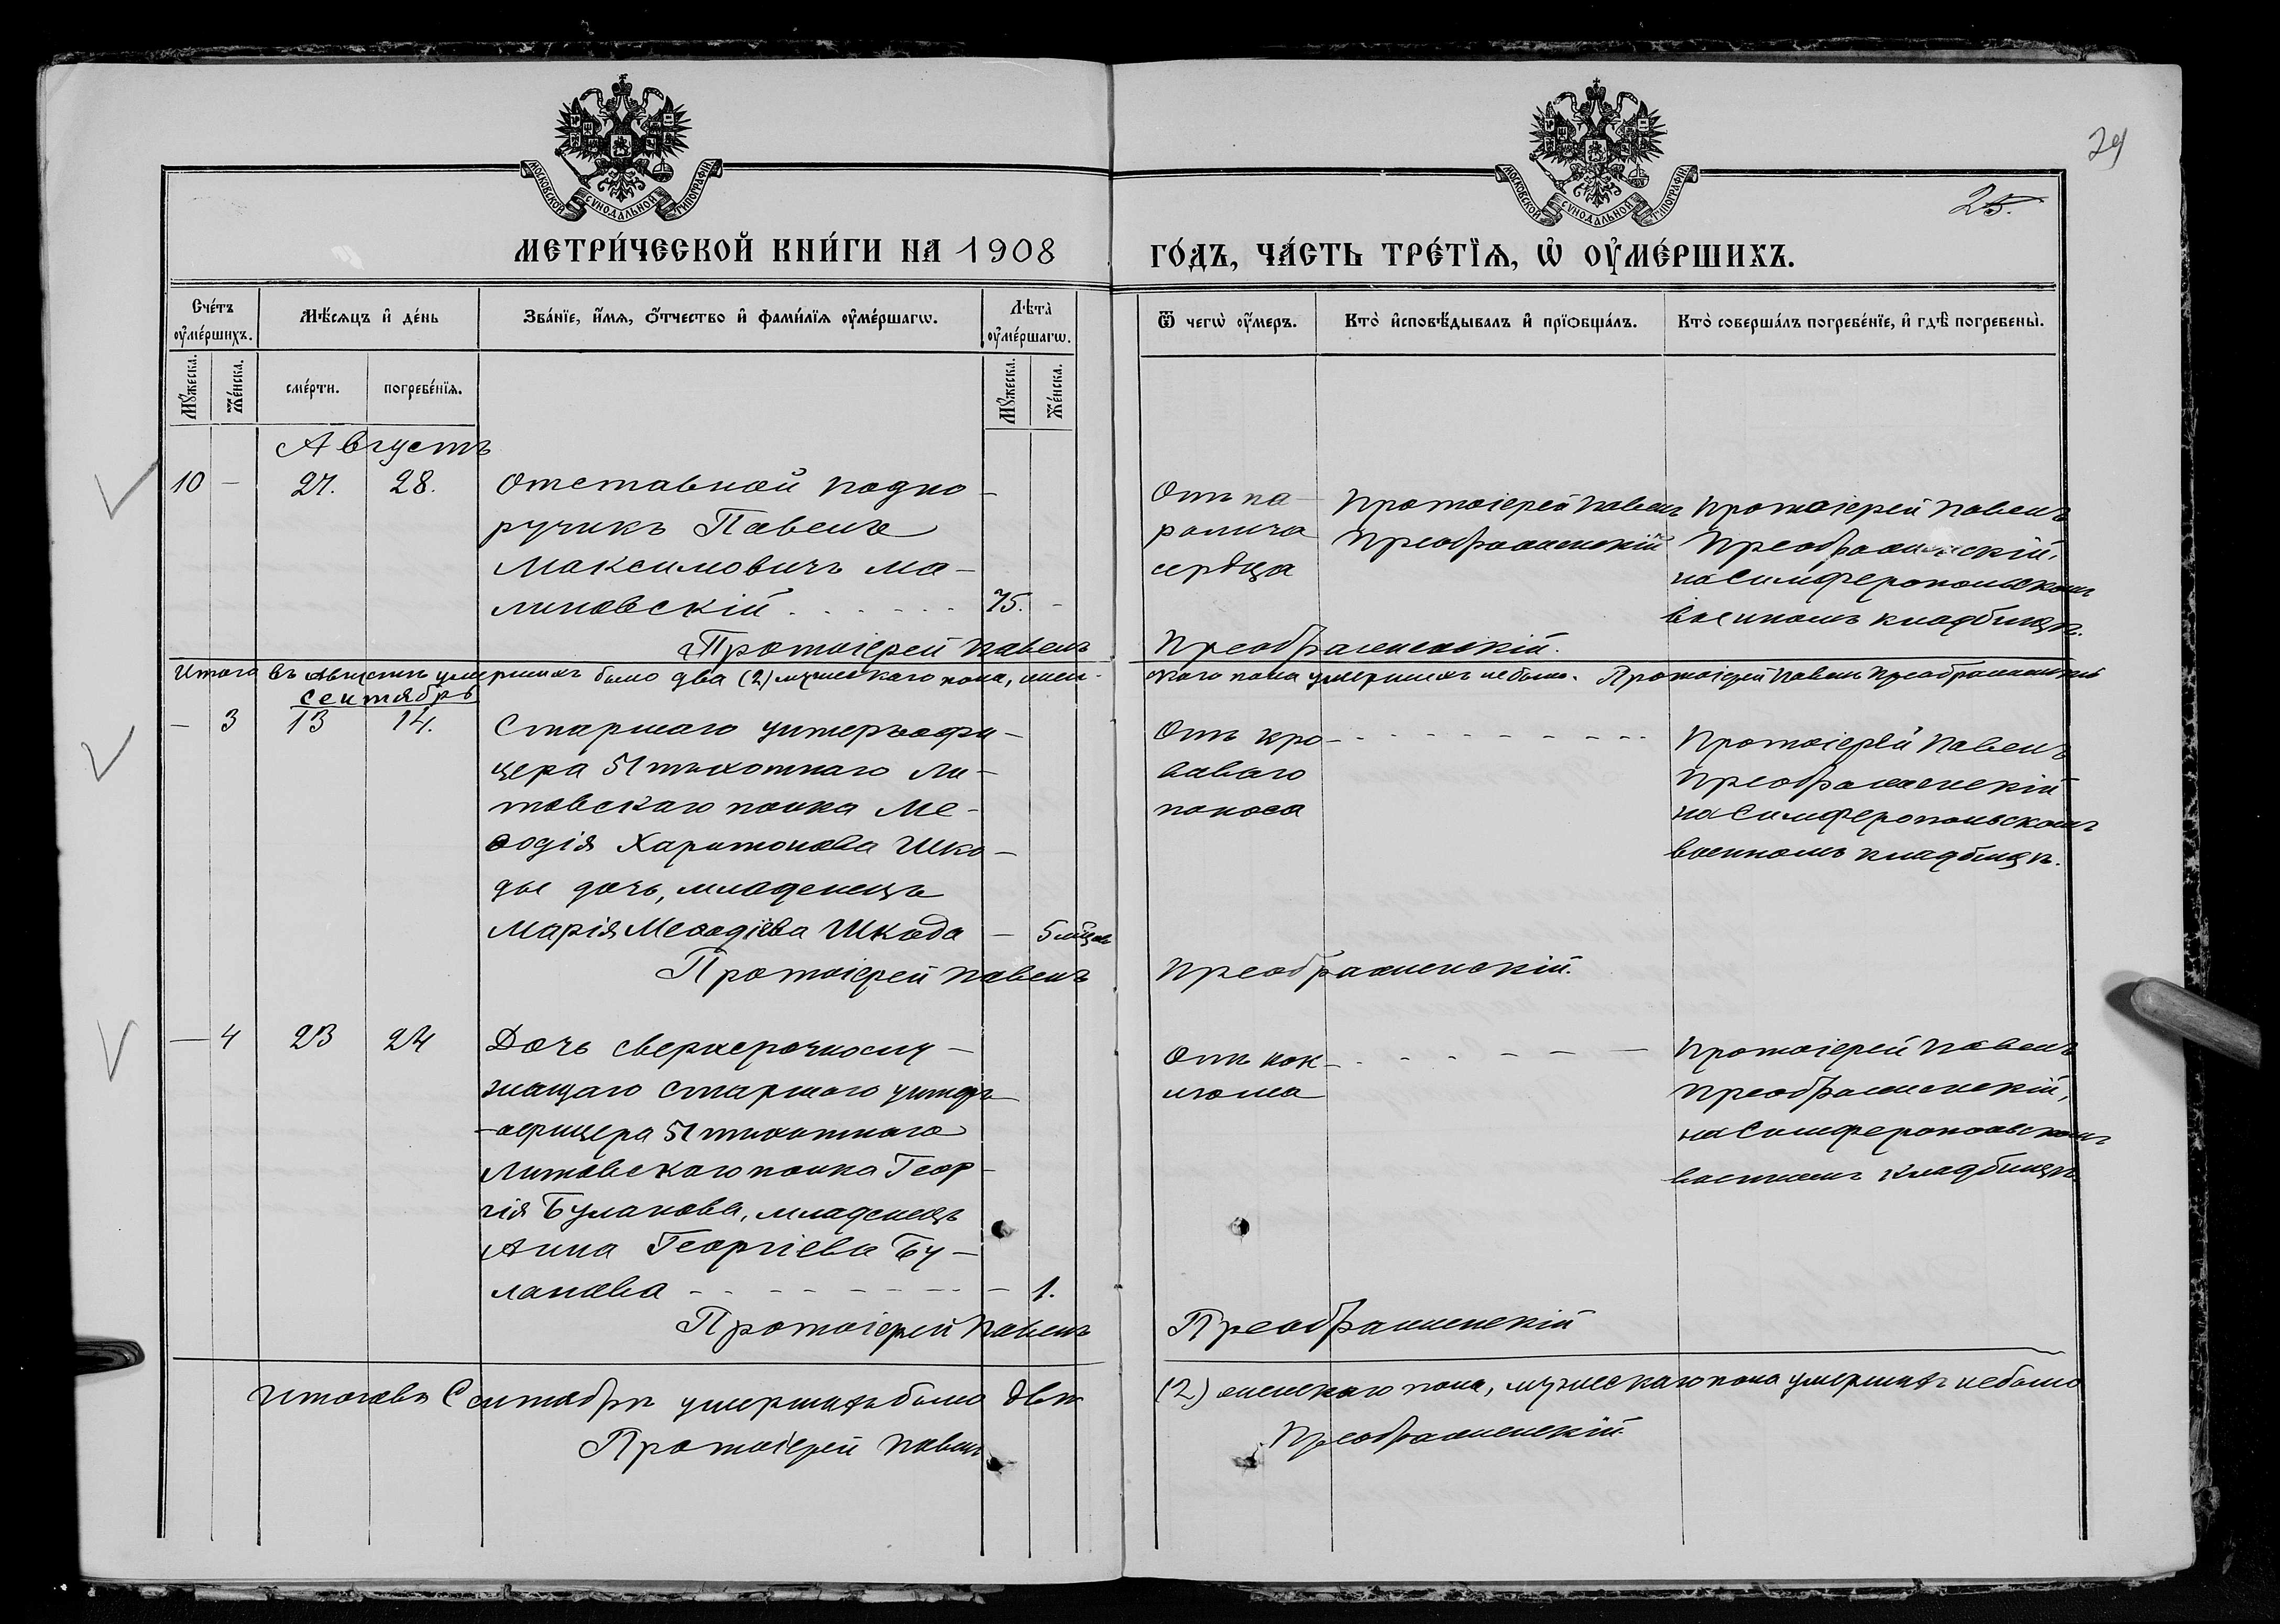 29
25.
МОСКОВСКОЙ СУНОДАЛЬНОЙ ТИПОГРАФІИ
МОСКОВСКОЙ СУНОДАЛЬНОЙ ТИПОГРАФІИ
МЕТРИ́ЧЕСКОЙ КНИ́ГИ НА 1908
ГО́ДЪ, ЧА́СТЬ ТРЕ́ТЇѦ, Ѡ҆ ОУ҆МЕ́РШИХЪ.
Сче́тъ оу҆ме́ршихъ.
Мѣ́сяцъ и҆ де́нь
Зва́нїе, и҆́мя, ѻ҆́тчество и҆ фами́лїя оу҆ме́ршагѡ.
Лѣта̀ оу҆ме́ршагѡ.
Ѿ чегѡ̀ оу҆́меръ.
Кто̀ и҆сповѣ́дывалъ и҆ прїѻбща́лъ.
Кто̀ соверша́лъ погребе́нїе, и҆ гдѣ̀ погребены̀.
Мꙋ́жеска.
Же́нска.
сме́рти.
погребе́нїя.
Мꙋ́жеска.
Же́нска.
Августъ
10 - 27. 28. Отставной подпо-
ручикъ Павелъ
Максимовичъ Ма-
линовскій . . . . . . 75. -
Отъ па-
ралича
сердца
Протоіерей Павелъ
Преображенскій
Протоіерей Павелъ
Преображенскій,
на Симферопольскомъ
военномъ кладбищѣ.
Протоіерей Павелъ Преображенскій.
Итого въ Августѣ умершихъ было два (2) мужескаго пола, жен-
скаго пола умершихъ не было. Протоіерей Павелъ Преображенскій
Сентябрь
- 3 13 14. Старшаго унтеръ-офи-
цера 51 пѣхотнаго Ли-
товскаго полка Ме-
ѳодія Харитонова Шко-
ды дочь, младенецъ
Марія Меѳодіева Шкода - 5 мѣс.
Отъ кро-
ваваго
поноса
Протоіерей Павелъ
Преображенскій
на Симферопольскомъ
военномъ кладбищѣ.
Протоіерей Павелъ Преображенскій.
- 4 23 24 Дочь сверхсрочнослу-
жащаго старшаго унтеръ-
-офицера 51 пѣхотнаго
Литовскаго полка Геор-
гія Буланова, младенецъ
Анна Георгіева Бу-
ланова - - - - - - - - 1.
Отъ кок-
люша
Протоіерей Павелъ
Преображенскій,
на Симферопольскомъ
военномъ кладбищѣ.
Протоіерей Павелъ Преображенскій
Итого въ Сентябрѣ умершихъ было двѣ (2) женскаго пола, мужескаго пола умершихъ не было
Протоіерей Павелъ Преображенскій.